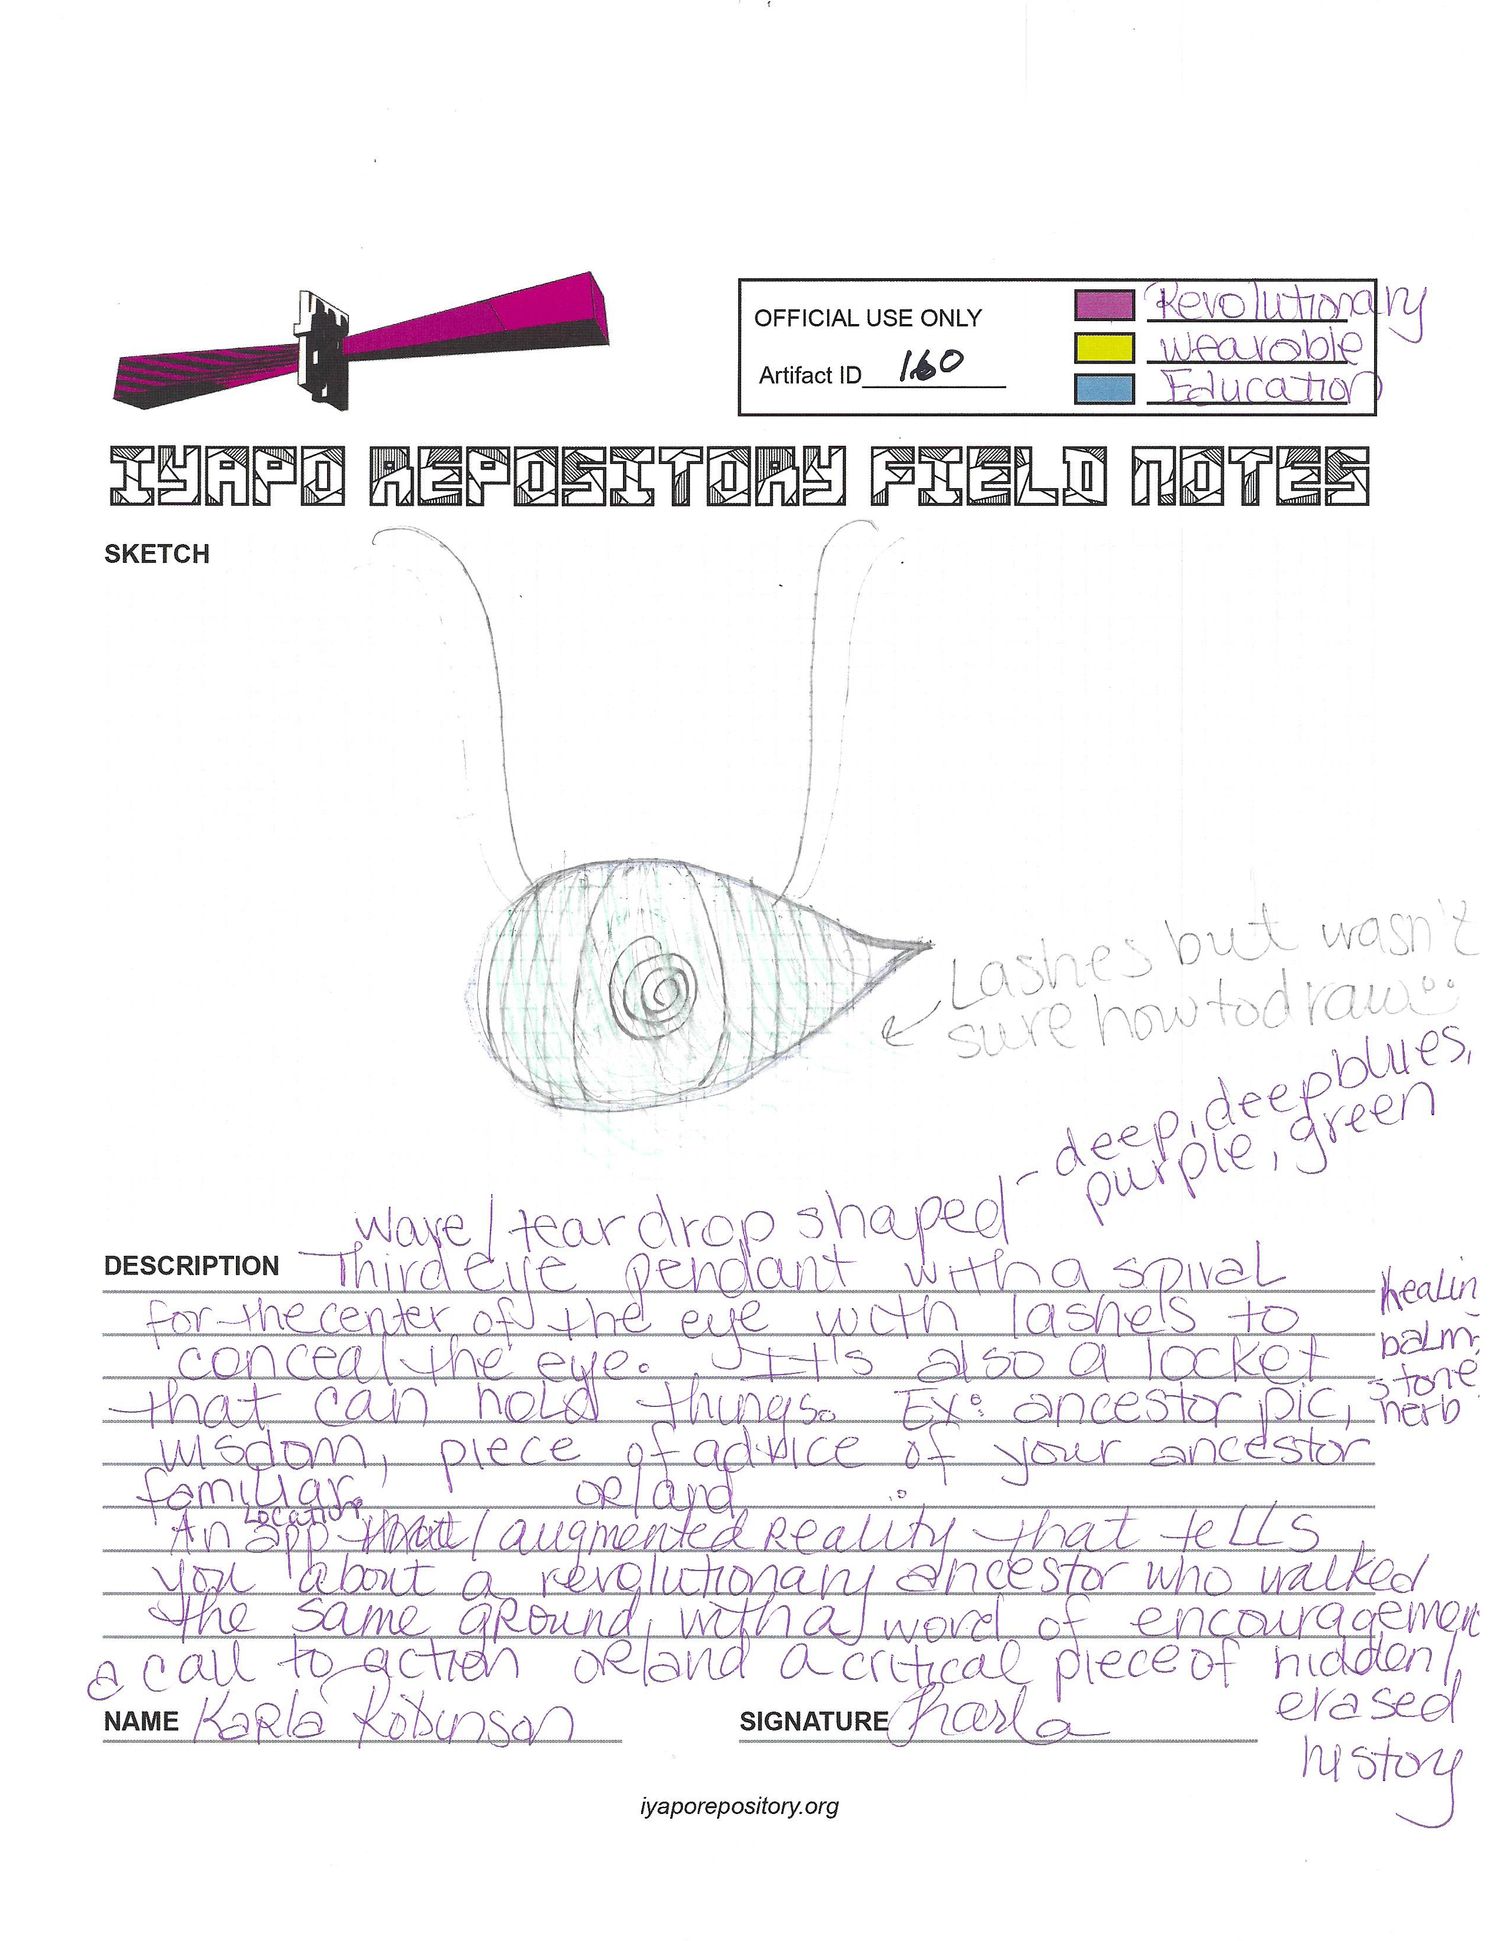 OFFICIAL USE ONLY
Artifact ID 160
Revolutionary
wearable
Education
IYAPO REPOSITORY FIELD NOTES
SKETCH
Lashes but wasn't
sure how to draw
deep, deep blues,
purple, green
wave/tear drop shaped -
DESCRIPTION Third Eye pendant with a spiral
for the center of the eye with lashes to
conceal the eye. It's also a locket
that can hold things. Ex: ancestor pic,
healin
balm,
stone
herb
wisdom, piece of advice of your ancestor
familiar or/and
Location
An app / augmented Reality that tells
you about a revolutionary ancestor who walked
the same ground, with a word of encouragement
a call to action or/and a critical piece of hidden/
erased
history
NAME Karla Robinson
SIGNATURE Karla
iyaporepository.org